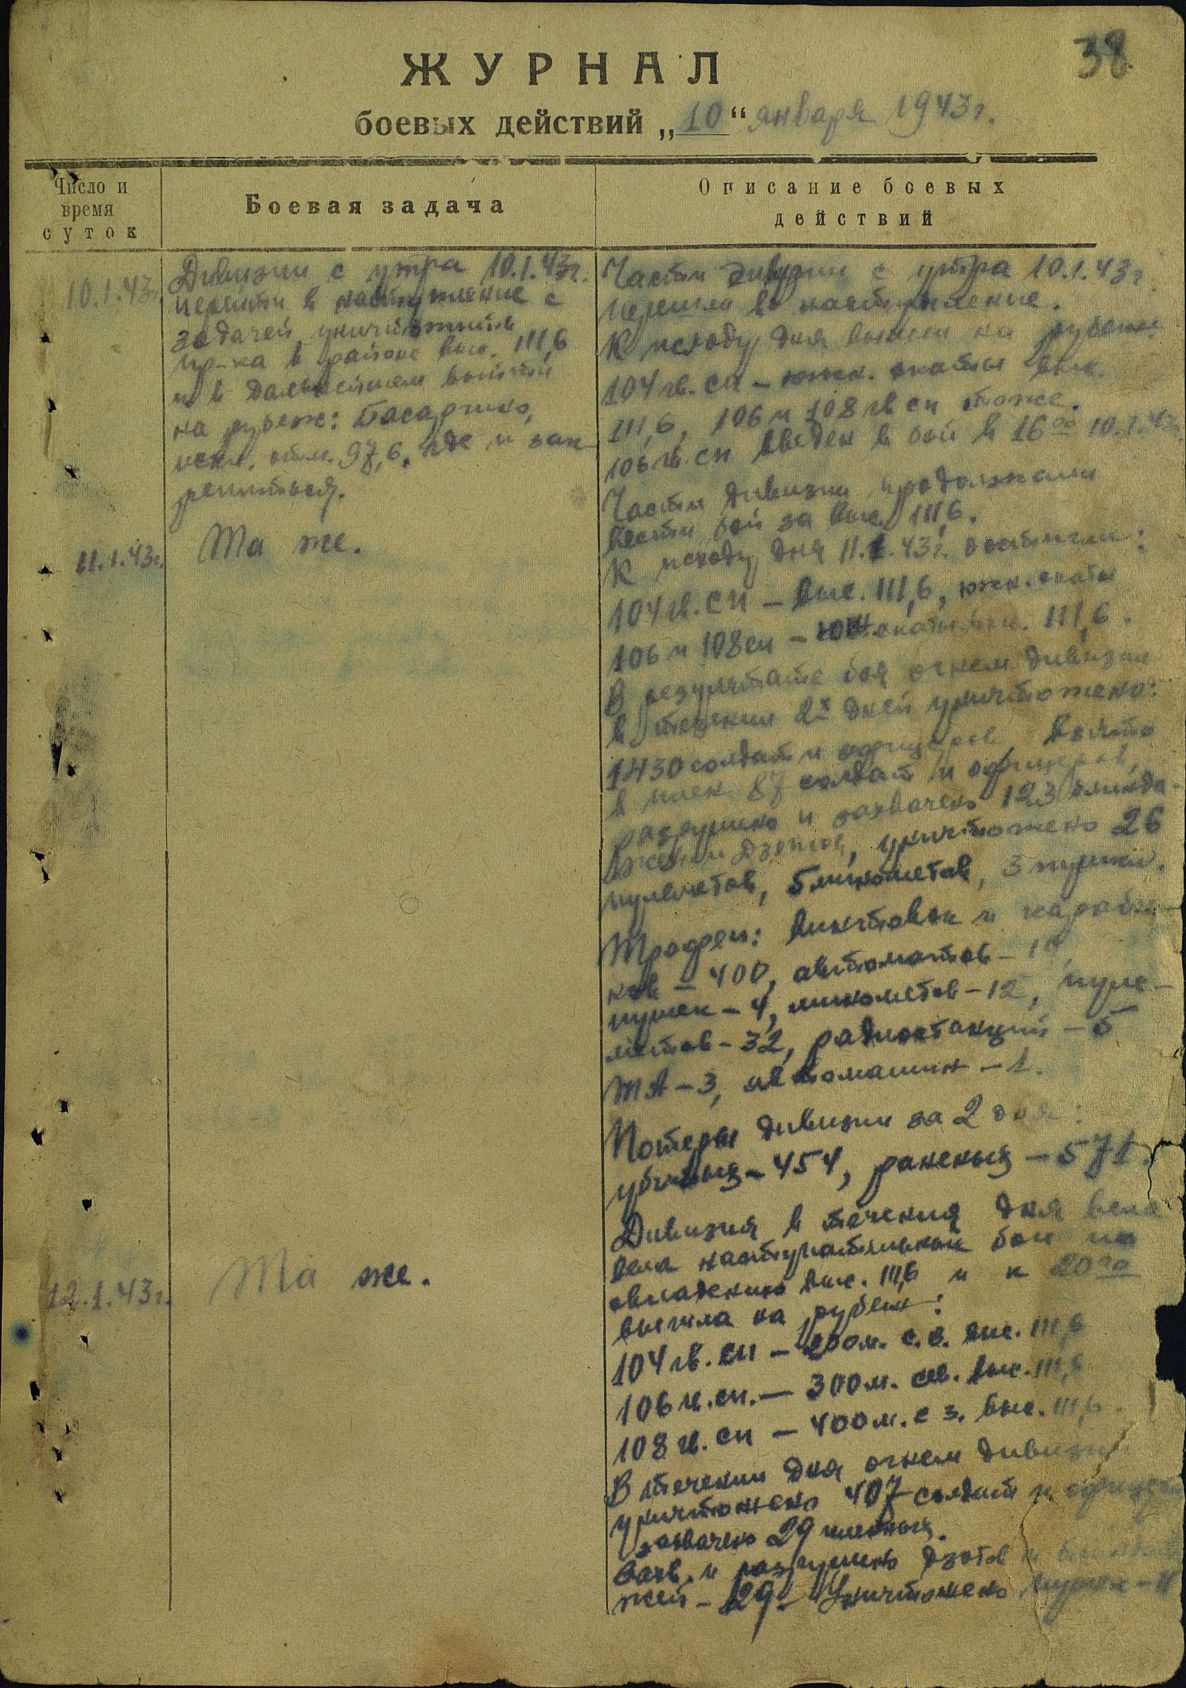 38
ЖУРНАЛ
боевых действий „10“ января 1943г.
Число и
время
суток
Боевая задача
Описание боевых
действий
10.1.43г.
Дивизии с утра 10.1.43г.
перейти в наступление с
задачей уничтожить
пр-ка в районе выс. 111,6
и в дальнейшем выйти
на рубеж: Басаргино,
искл. отм. 97,6, где и зак-
репиться.
Части дивизии с утра 10.1.43г.
перешли в наступление.
К исходу дня вышли на рубеж:
104 гв. сп – южн. скаты выс.
111,6, 106 и 108 гв сп тоже.
106 гв. сп введен в бой в 16 00 10.1.43г.
11.1.43г.
Та же.
Части дивизии продолжали
вести бой за выс. 111,6.
К исходу дня 11.1.43г. достигли:
104 гв. сп – выс. 111,6, южн. скаты
106 и 108 сп – скаты выс. 111,6.
В результате боя огнем дивизии
в течении 2х дней уничтожено:
1430 солдат и офицеров взято
в плен 87 солдат и офицеров,
разрушено и захвачено 123 блинда-
жей и дзотов, уничтожено 26
пулеметов, 5 минометов, 3 пушки.
Трофеи: винтовок и караби-
нов – 400, автоматов –
пушек – 4, минометов – 12, пуле-
метов – 32, радиостанций – 5
ТА – 3, автомашин – 1.
Потери дивизии за 2 дня:
убитых – 454, раненых – 571.
12.1.43г.
Та же.
Дивизия в течения дня вела
вела наступательные бои по
овладению выс. 111,6 и к 20 00
вышла на рубеж:
104 гв. сп – 200м. с.в. выс. 111,6
106 гв. сп. – 300м. сев. выс. 111,6
108 гв. сп – 400м. с з. выс. 111,6.
В течении дня огнем дивизии
уничтожено 407 солдат и офицеров
захвачено 29 пленных.
Захв. и разрушено дзотов и блинда-
жей – 129. Уничтожено пушек –